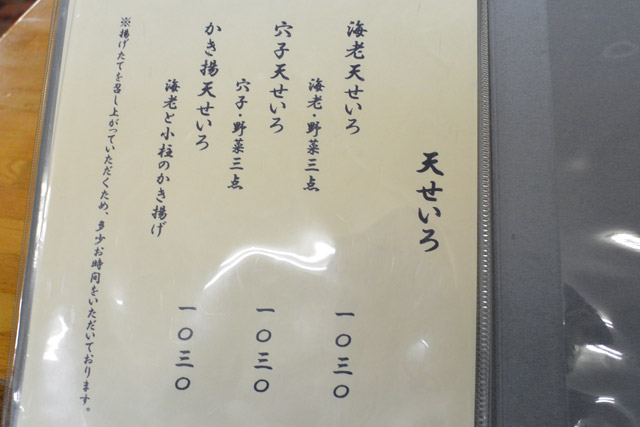 天せいろ
海老天せいろ
海老・野菜三点
一〇三〇
穴子天せいろ
穴子・野菜三点
一〇三〇
かき揚天せいろ
海老と小柱のかき揚げ
一〇三〇
※揚げたてを召し上がっていただくため、多少お時間をいただいております。